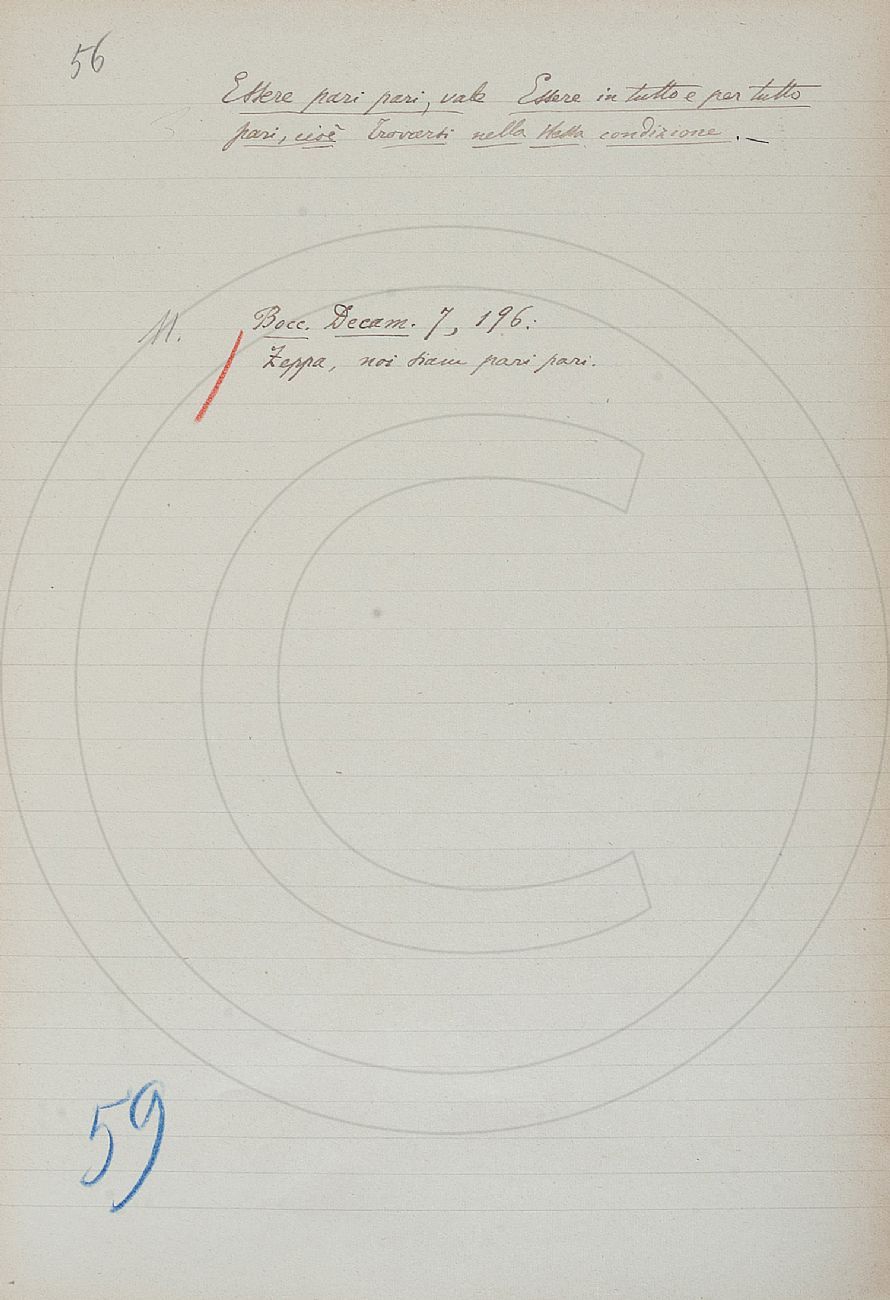 56
Essere pari pari, vale Essere in tutto e per tutto
pari, cioè Trovarsi nella stessa condizione. —
M. Bocc. Decam. 7, 196:
Zeppa, noi siam pari pari.
59